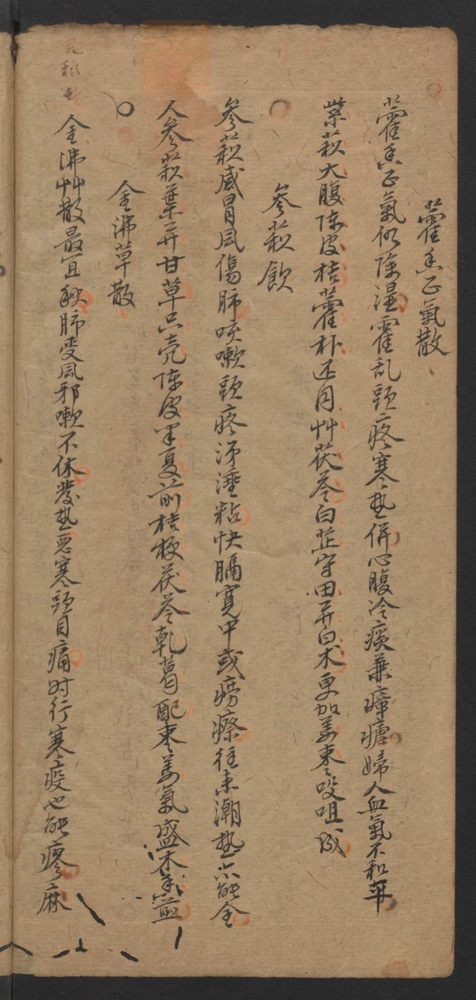 藿香正氣散
藿香正氣似除濕霍乱頭疼寒热併心腹冷痰兼瘴瘧婦人血氣不和平
紫蘇大腹陳皮桔藿朴还同艸茯苓白芷守田并白术更加姜枣㕮咀成
参蘇飲
参蘇感冒風傷肺咳嗽頭疼涕唾粘快膈寬中或癆瘵往来潮热亦能全
人参蘇葉并甘草只壳陳皮半夏前桔梗茯苓乾葛配枣姜氣盛木香煎
金沸草散
金沸艸散最宜秋肺受風邪嗽不休發热惡寒頭目痛时行寒疫也能瘳麻